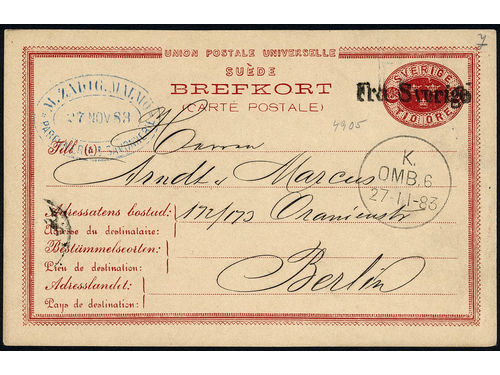 7
UNION POSTALE UNIVERSELLE
SUÈDE
BREFKORT
(CARTE POSTALE)
SVERIGE
TIO ÖRE
Från Sverige
M. ZADIG, MALMÖ
27 NOV 83
4905
Till (à) Herren
Arndt u Marcus
K.
OMB. 6
27-11-83
Adressatens bostad: 172/173 Oranienstr
Adresse du destinataire:
Bestämmelseorten:
Lieu de destination: Berlin
Adresslandet:
Pays de destination: